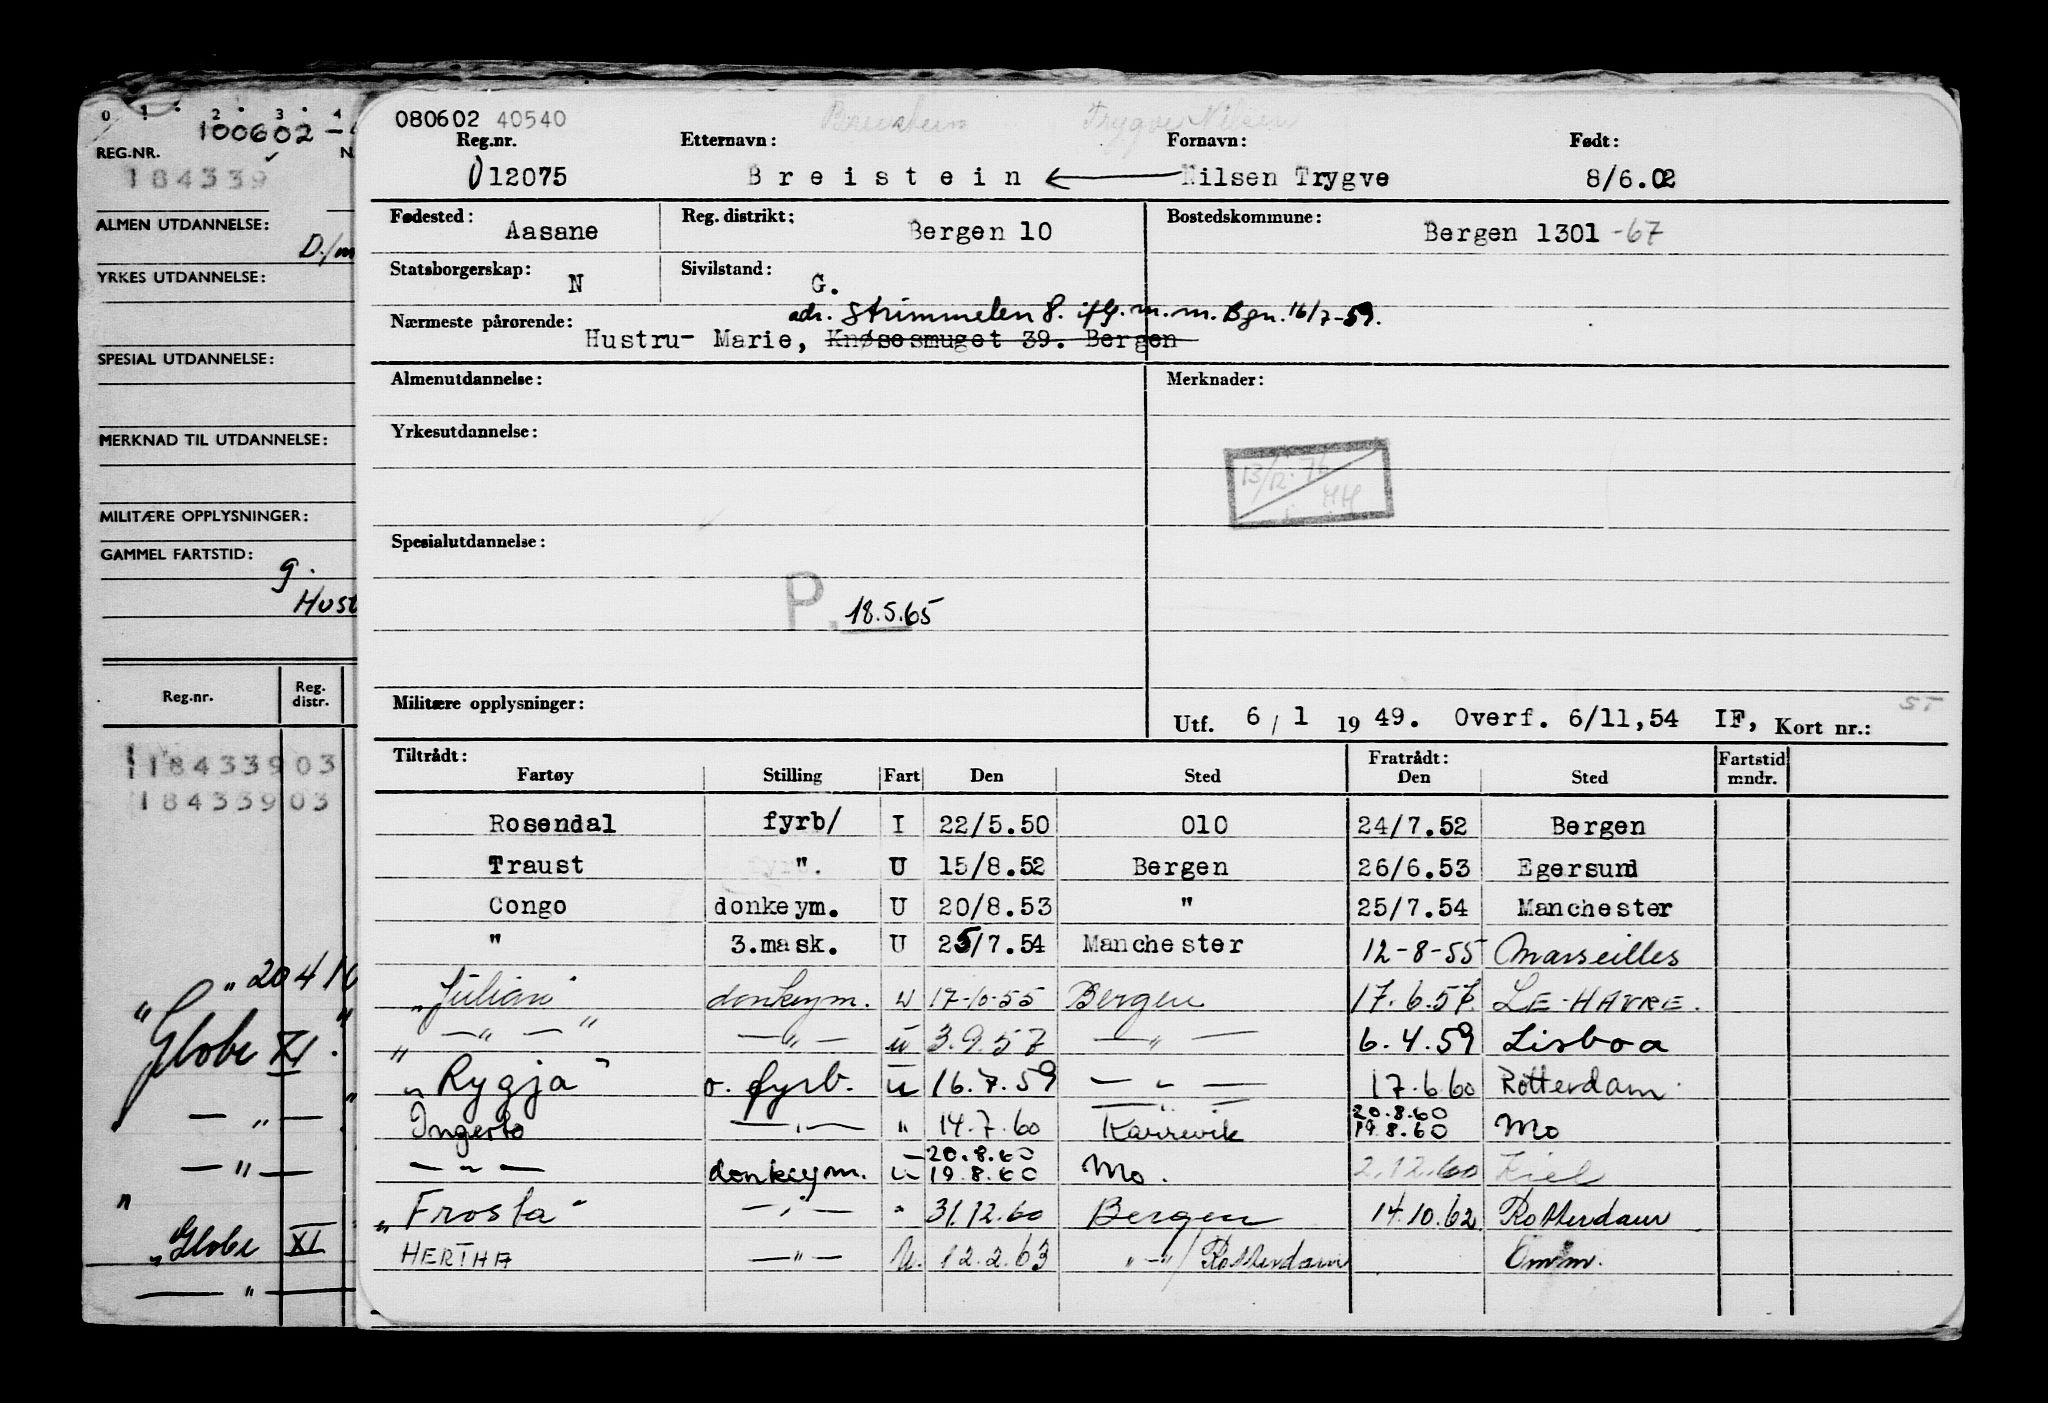 0 1 2 3 4
100602 -
REG.NR. N
184339
ALMEN UTDANNELSE:
D./m
YRKES UTDANNELSE:
SPESIAL UTDANNELSE:
MERKNAD TIL UTDANNELSE:
MILITÆRE OPPLYSNINGER:
GAMMEL FARTSTID:
g.
Hust
Reg.nr. Reg. distr.
118433903
18433903
"Globe XI."
— " —
— " —
"Globe XI
— " —
080602 40540 Breistein Trygve Nilsen
Reg.nr. Etternavn: Fornavn: Født:
012075 Breistein Nilsen Trygve 8/6.02
Fødested: Aasane Reg. distrikt: Bergen 10 Bostedskommune: Bergen 1301 -67
Statsborgerskap: N Sivilstand: G.
adr. Strimmelen 8. iflg. m.m. Bgn. 16/7-59.
Nærmeste pårørende: Hustru- Marie, Knøsesmuget 39. Bergen
Almenutdannelse: Merknader:
Yrkesutdannelse:
13/12.76
HH
Spesialutdannelse:
P. 18.5.65
Militære opplysninger: Utf. 6 / 1 19 49. Overf. 6/11,54 IF, Kort nr.: ST
Tiltrådt: Fratrådt: Fartstid
Fartøy Stilling Fart Den Sted Den Sted mndr.
Rosendal fyrb/ I 22/5.50 010 24/7.52 Bergen
Traust ". U 15/8.52 Bergen 26/6.53 Egersund
Congo donkeym. U 20/8.53 " 25/7.54 Manchester
" 3.mask. U 25/7.54 Manchester 12-8-55 Marseilles
"Julian" donkeym. U 17-10-55 Bergen 17.6.57. LE-HAVRE.
" — " — " — " — U 3.9.57 — " — 6.4.59 Lisboa
"Rygja" o. fyrb. U 16.7.59 — " — 17.6.60 Rotterdam.
Ingerto — " — " 14.7.60 Karrevik 20.8.60 19.8.60 Mo
— " — donkeym. U 20.8.60 19.8.60 Mo. 2.12.60 Kiel
"Frosta" — " — " 31.12.60 Bergen 14.10.62 Rotterdam
HERTHA — " — U. 12.2.63 " — " / Rotterdam Omm.